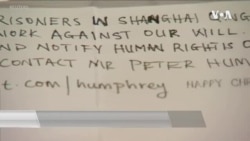 VOA
RISONERS IN SHANGHAI
WORK AGAINST OUR WILL.
ND NOTIFY HUMAN RIGHTS
CONTACT MR PETER HUM
t.com/humphrey HAPPY CHR